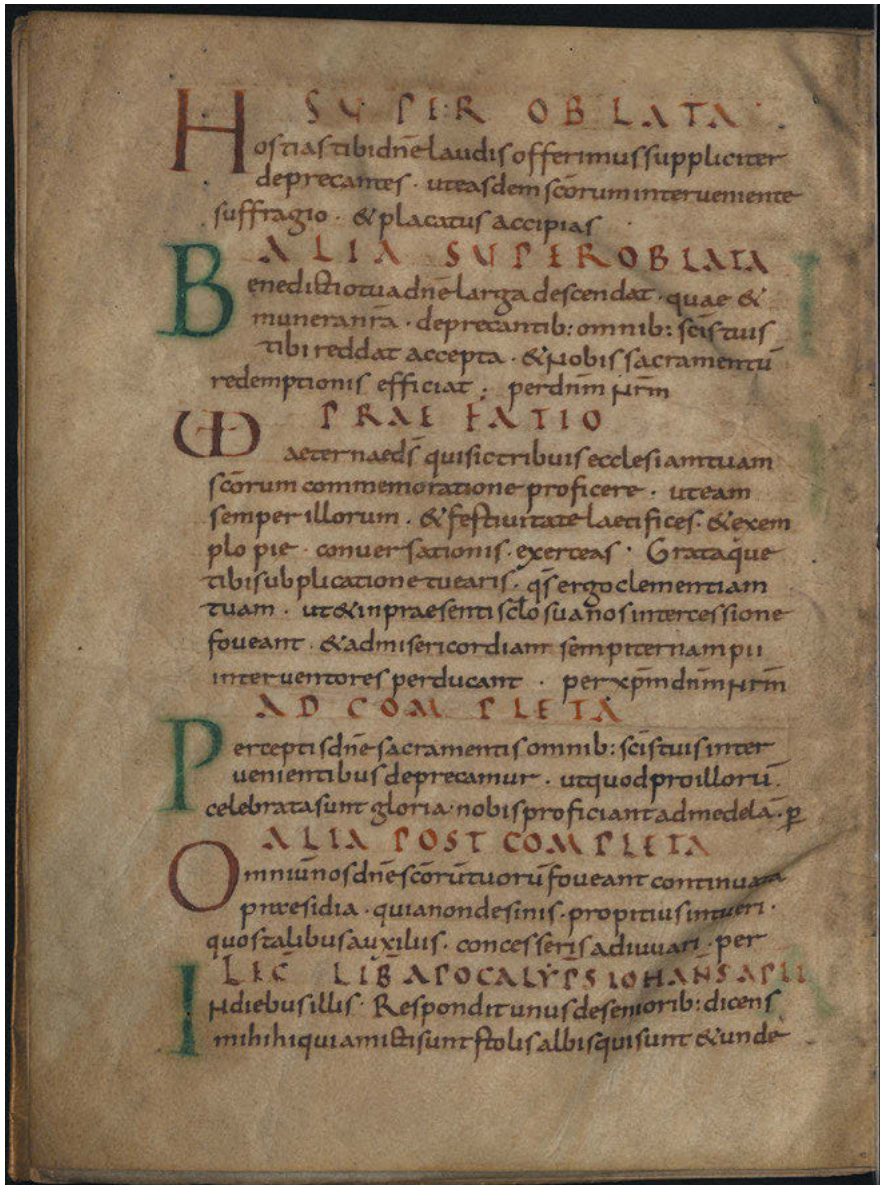 SUPER OBLATA
Hostias tibi dn̄e laudis offerimus suppliciter
deprecantes · ut easdem sc̄orum interueniente
suffragio · & placatus accipias
ALIA SUPER OBLATA
Benedictio tua dn̄e larga descendat · quae &
munera nr̄a · deprecantib: omnib: sc̄is tuis
tibi reddat accepta · & nobis sacramentū
redemptionis efficiat ; per dn̄m nr̄m
PRAEFATIO
UD aeternae ds̄ qui sic tribuis ecclesiam tuam
sc̄orum commemoratione proficere · ut eam
semper illorum · & festiuitate laetifices · & exem
plo pie · conuersationis · exerceas · Grataque
tibi subplicatione tuearis · qs̄ ergo clementiam
tuam · ut & in praesenti sc̄lo sua nos intercessione
foueant · & ad misericordiam sempiternam pii
interuentores perducant · per xp̄m dn̄m nr̄m
AD COMPLETA
Perceptis dn̄e sacramentis omnib: sc̄is tuis inter
uenientibus deprecamur · ut quod pro illorū
celebrata sunt gloria · nobis proficiant ad medelā · p̄
ALIA POST COMPLETA
Omniū nos dn̄e sc̄orū tuorū foueant continuata
praesidia · quia non desinis · propitius intueri ·
quos talibus auxiliis · concesseris adiuuari · per
LEC LIB̄ APOCALYPS IOHAN̄S APLI
In diebus illis · Respondit unus de seniorib: dicens
mihi hi qui amicti sunt stolis albis qui sunt & unde